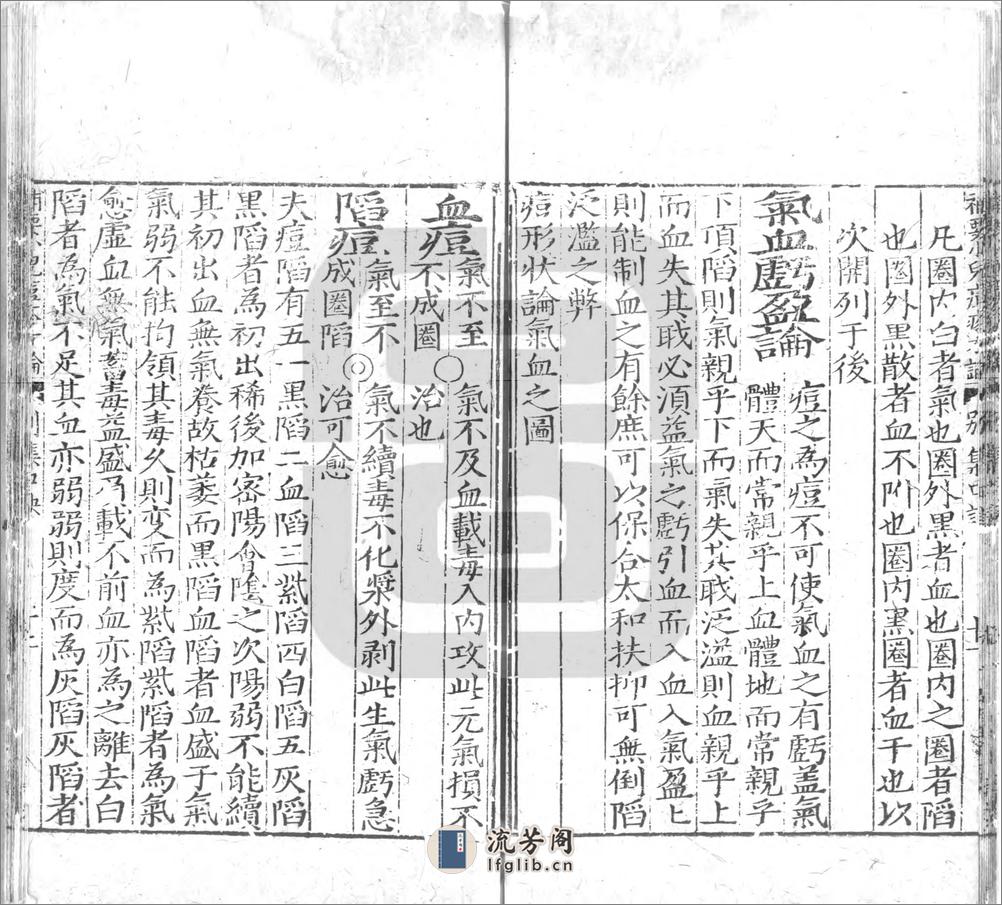 凡圈內白者氣也圈外黑者血也圈內之圈者陷
也圈外黑散者血不附也圈內黑圈者血干也以
次開列于後
氣血虧盈論
痘之為痘不可使氣血之有虧盖氣
體天而常親乎上血體地而常親乎
下頂陷則氣親乎下而氣失其職泛溢則血親乎上
而血失其職必須益氣之虧引血而入血入氣盈匕
則能制血之有餘庶可以保合太和扶抑可無倒陷
泛濫之弊
痘形狀論氣血之圖
血痘
氣不至
不成圈
氣不及血載毒入內攻此元氣損不
治也
陷痘
氣至不
成圈陷
氣不續毒不化漿外剥此生氣虧急
治可愈
夫痘陷有五一黑陷二血陷三紫陷四白陷五灰陷
黑陷者為初出稀後加密陽會陰之次陽弱不能續
其初出血無氣養故枯萎而黑陷血陷者血盛子氣
氣弱不能拘領其毒久則变而為紫陷紫陷者為氣
愈虛血無氣蓄毒益盛乃載不前血亦為之離去白
陷者為氣不足其血亦弱弱則度而為灰陷灰陷者
流芳阁
lfglib.cn